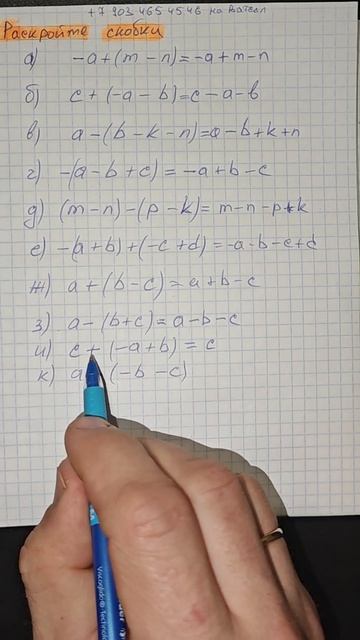 +7 903 465 45 46 на Ватсап
Раскройте скобки
а) -a+(m-n)=-a+m-n
б) c+(-a-b)=c-a-b
в) a-(b-k-n)=a-b+k+n
г) -(a-b+c)=-a+b-c
д) (m-n)-(p-k)=m-n-p+k
е) -(a+b)+(-c+d)=-a-b-c+d
ж) a+(b-c)=a+b-c
з) a-(b+c)=a-b-c
и) c+(-a+b)=c
к) a (-b-c)